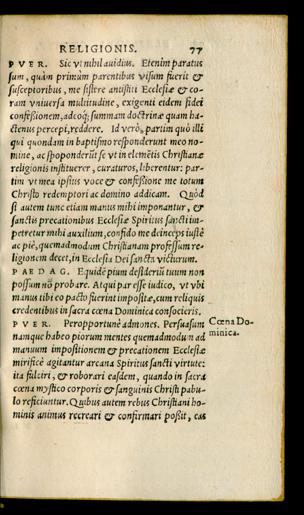 RELIGIONIS. 77
PVER. Sic vt nihil auidius. Etenim paratus
sum, quàm primùm parentibus visum fuerit &
susceptoribus, me sistere antistiti Ecclesiæ & co-
ram vniuersa multitudine, exigenti eidem fidei
confeßionem, adeoq; summam doctrinæ quam ha-
ctenus percepi, reddere. Id verò, partim quò illi
qui quondam in baptismo responderunt meo no-
mine, ac spoponderūt se vt in elemētis Christianæ
religionis instituerer, curaturos, liberentur: par-
tim vt mea ipsius voce & confeßione me totum
Christo redemptori ac domino addicam. Quòd
si autem tunc etiam manus mihi imponantur, &
sanctis precationibus Ecclesiæ Spiritus sancti im-
petretur mihi auxilium, confido me deinceps iustè
ac piè, quemadmodum Christianam professum re-
ligionem decet, in Ecclesia Dei sancta victurum.
PAEDAG. Equidē pium desideriū tuum non
possum nō probare. Atqui par esse iudico, vt vbi
manus tibi eo pacto fuerint impositæ, cum reliquis
credentibus in sacra cœna Dominica consocieris.
PVER. Peropportunè admones. Persuasum
Cœna Do-
minica.
namque habeo piorum mentes quemadmodum ad
manuum impositionem & precationem Ecclesiæ
mirificè agitantur arcana Spiritus sancti virtute:
ita fulciri, & roborari easdem, quando in sacra
cœna mystico corporis & sanguinis Christi pabu-
lo reficiuntur. Quibus autem rebus Christiani ho-
minis animus recreari & confirmari poßit, eas